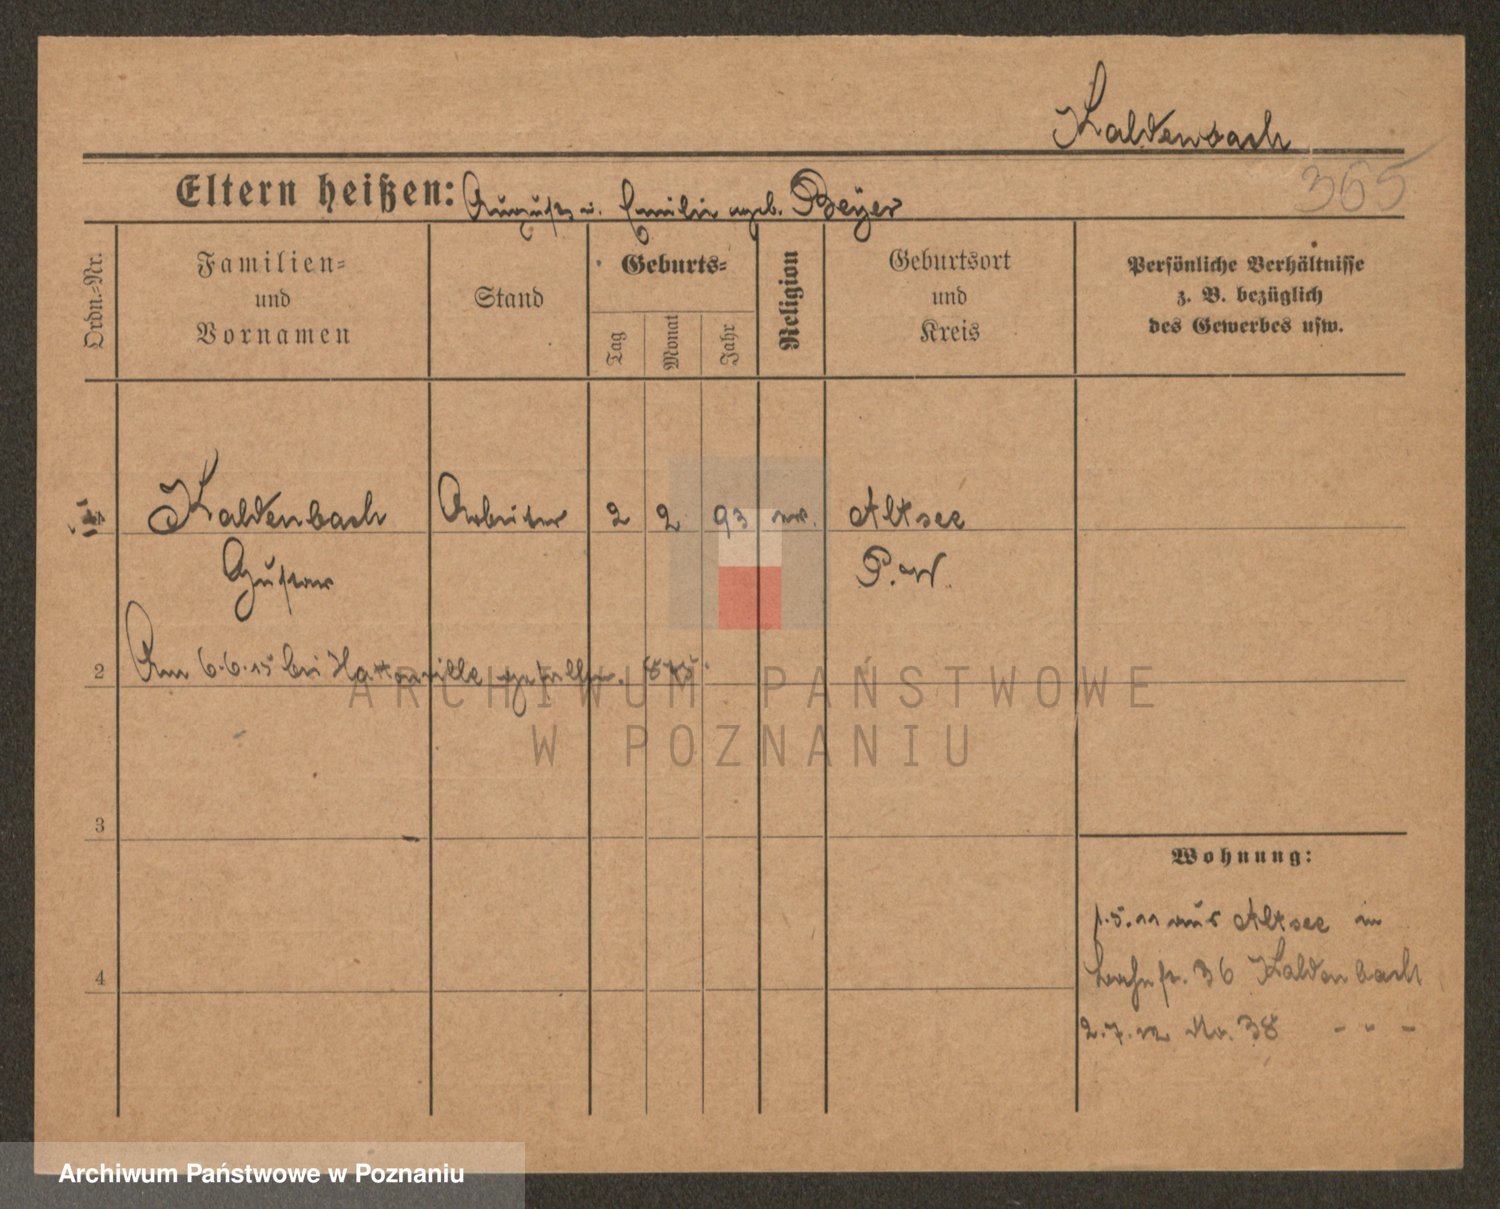 Kaldenbach
365
Eltern heißen: August u. Emilie geb. Beyer
Ordn.-Nr.
Familien- und Vornamen
Stand
Geburts-
Tag
Monat
Jahr
Religion
Geburtsort und Kreis
Persönliche Verhältnisse
z. B. bezüglich
des Gewerbes usw.
Kaldenbach Arbeiter 2 2 93 ev. Altsee
Gustav P. W.
2 Am 6.6.15 bei gefallen.
3
4
Wohnung:
1.5.11 aus Altsee in
36 Kaldenbach
2.7.12 No. 38 - " -
ARCHIWUM PAŃSTWOWE
W POZNANIU
Archiwum Państwowe w Poznaniu